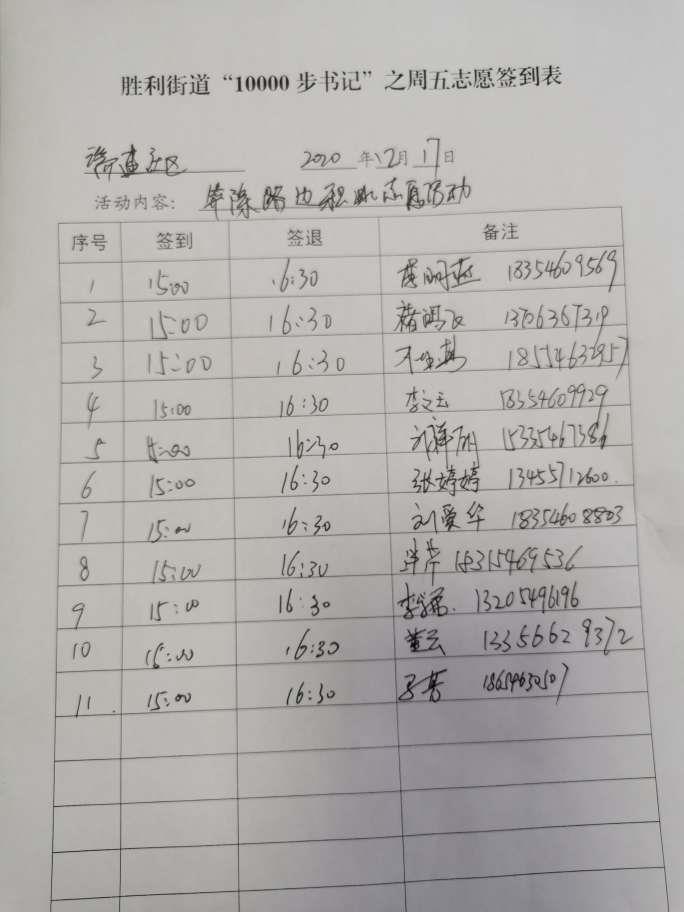 胜利街道“10000步书记”之周五志愿签到表
社区 2020年12月17日
活动内容: 清除路边积水志愿活动
序号 签到 签退 备注
1 15:00 16:30 18354609569
2 15:00 16:30
3 15:00 16:30
4 15:00 16:30 李文云 18354609929
5 15:00 16:30 15335467386
6 15:00 16:30 张婷婷 13455712600.
7 15:00 16:30 刘爱华 18354608803
8 15:00 16:30 15315469536
9 15:00 16:30 13205496196
10 15:00 16:30 董云 13356629372
11. 15:00 16:30